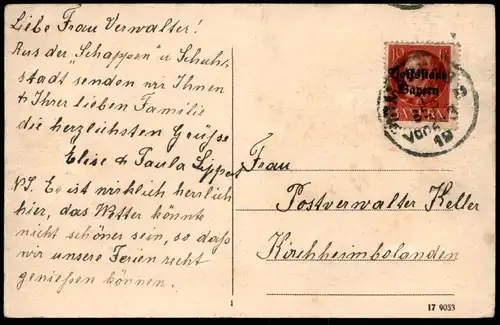 Liebe Frau Verwalter!
Aus der "Schlappen" u Schuh-
stadt senden wir Ihnen
& Ihrer lieben Familie
die herzlichsten Grüsse
Elise & Paula Lippert
PS. Es ist wirklich herrlich
hier, das Wetter könnte
nicht schöner sein, so daß
wir unsere Ferien recht
genießen können.
10 PF
Volksstaat
Bayern
BAYERN
Vorm
Frau
Postverwalter Keller
Kirchheimbolanden
1
17 9053